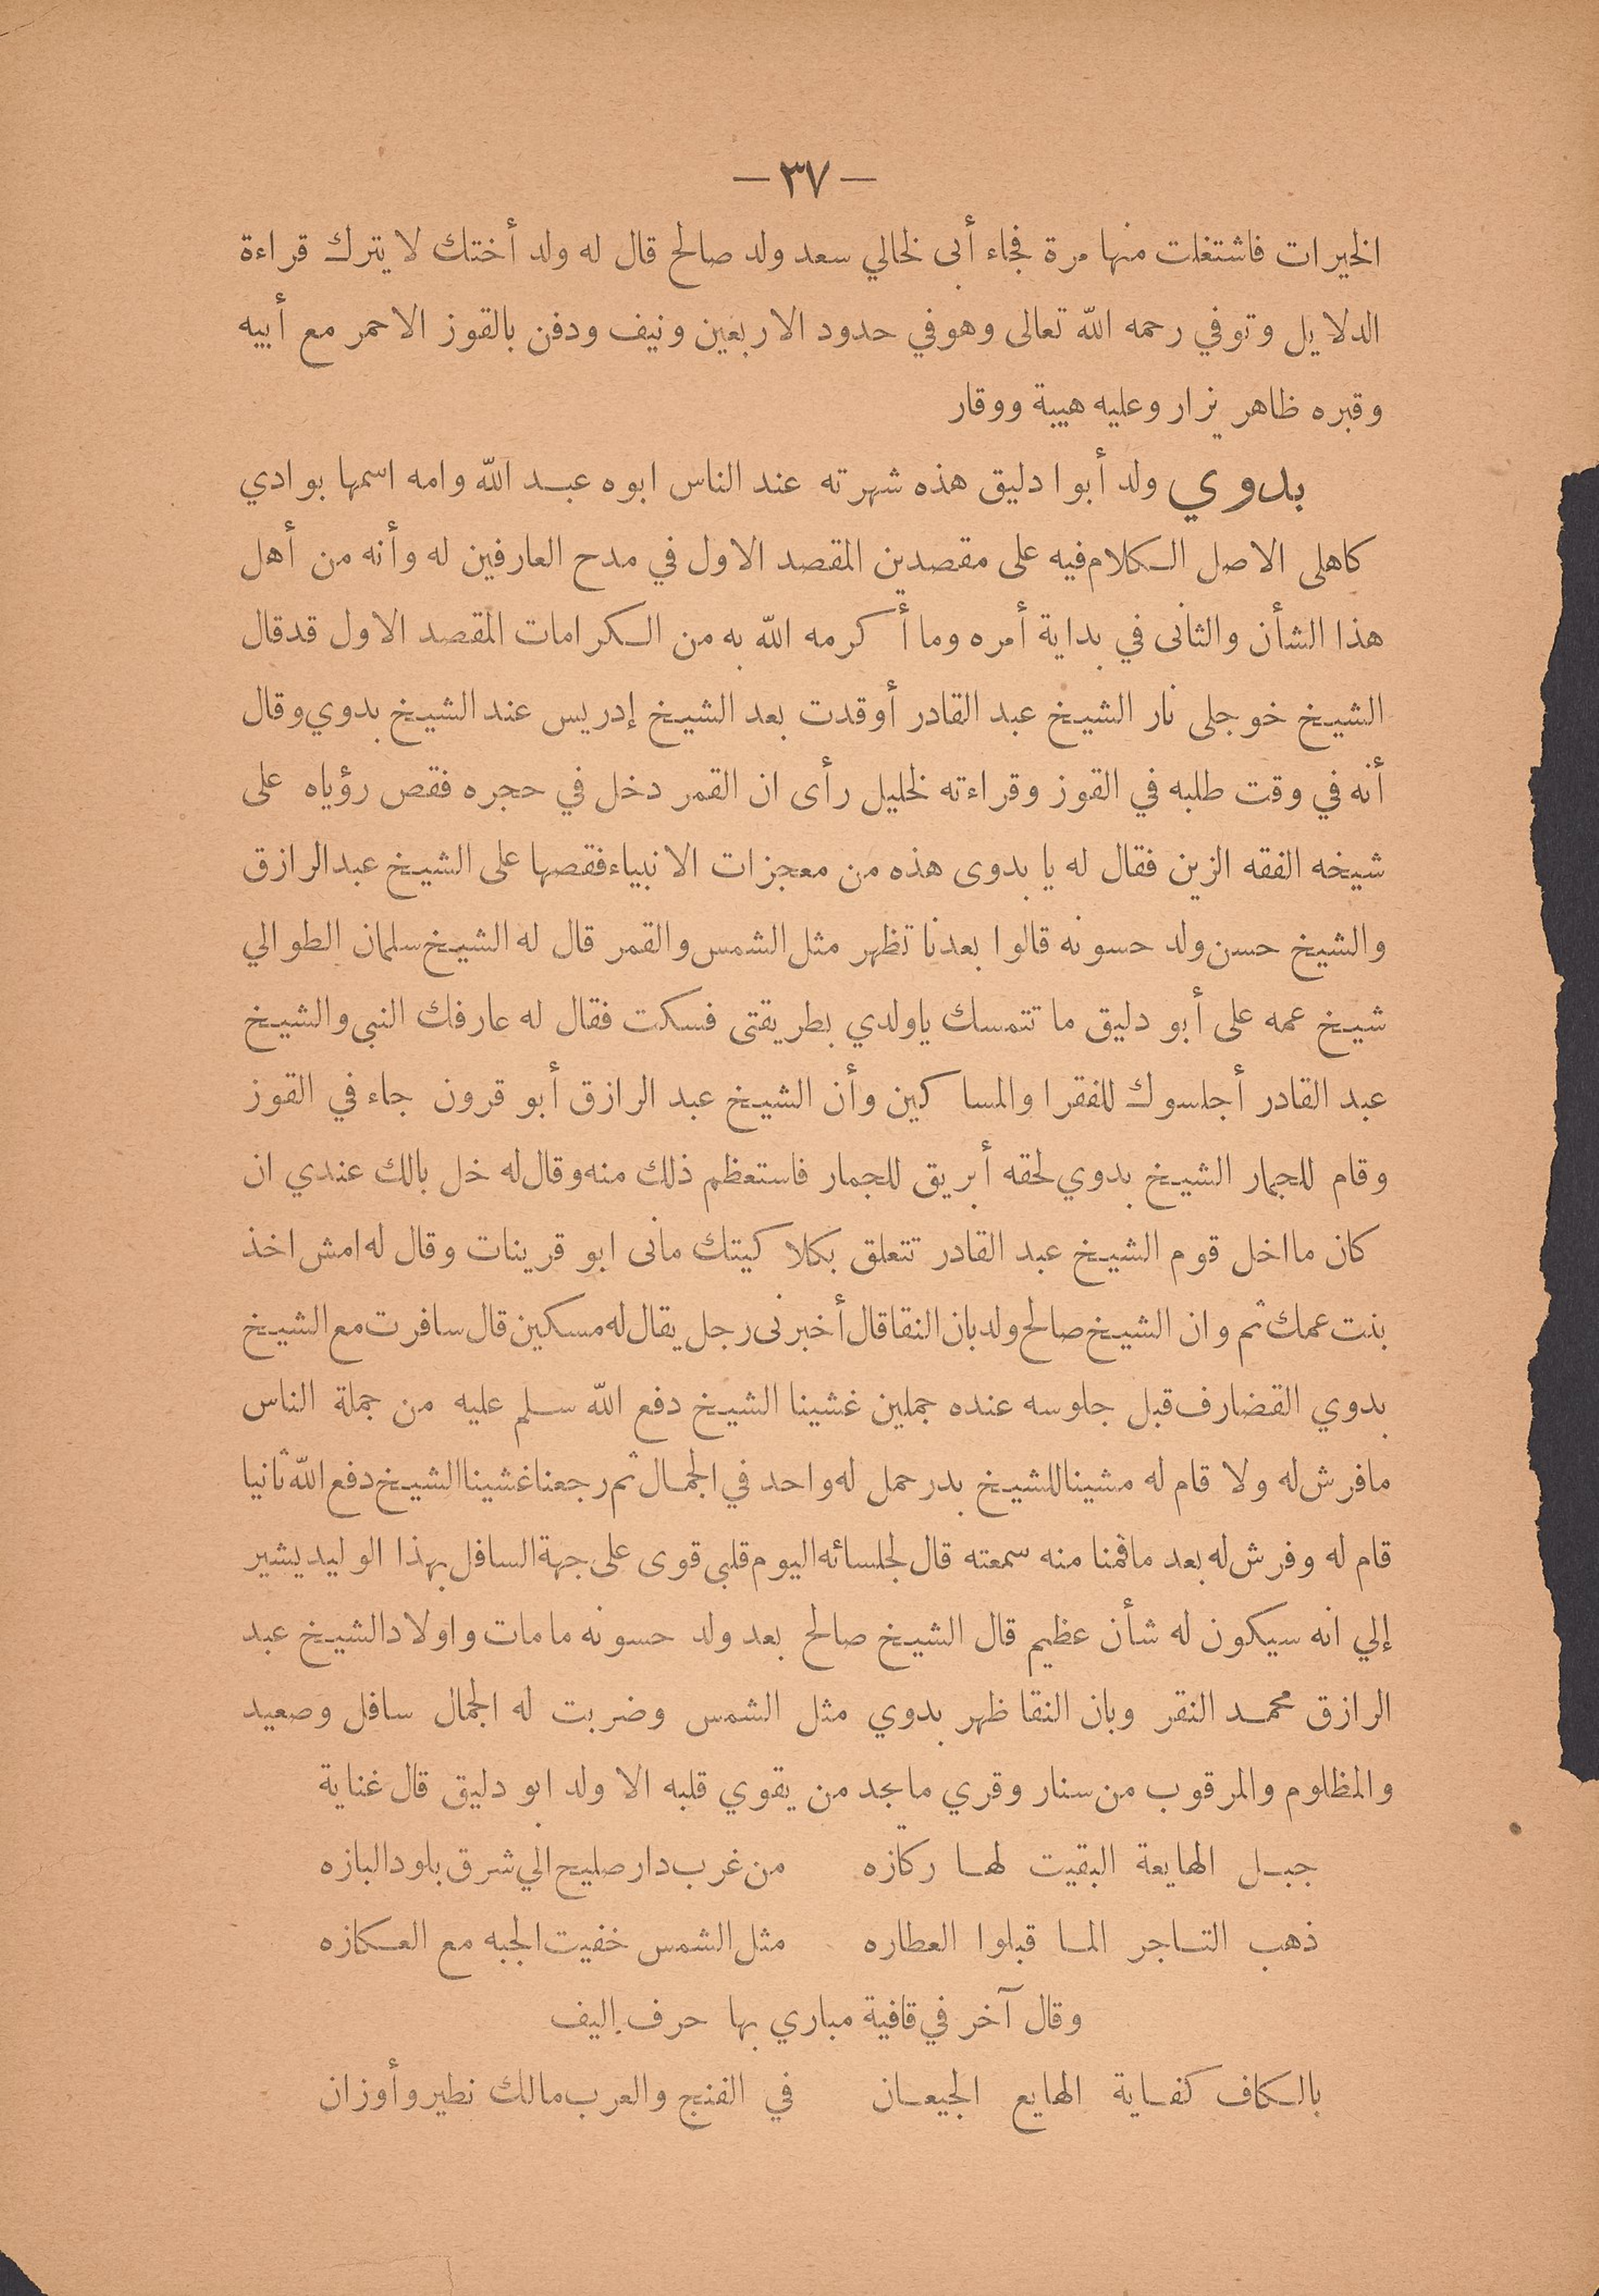 — ٣٧ —
الخيرات فاشتغلت منها مرة فجاء أبى لخالي سعد ولد صالح قال له ولد أختك لا يترك قراءة
الدلايل وتوفي رحمه الله تعالى وهو في حدود الاربعين ونيف ودفن بالقوز الاحمر مع أبيه
وقبره ظاهر يزار وعليه هيبة ووقار
بدوي ولد أبوا دليق هذه شهرته عند الناس ابوه عبد الله وامه اسمها بوادي
كاهلى الاصل الكلام فيه على مقصدين المقصد الاول في مدح العارفين له وأنه من أهل
هذا الشأن والثانى في بداية أمره وما أكرمه الله به من الكرامات المقصد الاول قد قال
الشيخ خوجلى نار الشيخ عبد القادر أوقدت بعد الشيخ إدريس عند الشيخ بدوي وقال
أنه في وقت طلبه في القوز وقراءته لخليل رأى ان القمر دخل في حجره فقص رؤياه على
شيخه الفقه الزين فقال له يا بدوى هذه من معجزات الانبياء فقصها على الشيخ عبد الرازق
والشيخ حسن ولد حسونه قالوا بعدنا تظهر مثل الشمس والقمر قال له الشيخ سلمان الطوالي
شيخ عمه على أبو دليق ما تتمسك ياولدي بطريقتى فسكت فقال له عارفك النبى والشيخ
عبد القادر أجلسوك للفقرا والمساكين وأن الشيخ عبد الرازق أبو قرون جاء في القوز
وقام للجمار الشيخ بدوي لحقه أبريق للجمار فاستعظم ذلك منه وقال له خل بالك عندي ان
كان ما اخل قوم الشيخ عبد القادر تتعلق بكلا كيتك مانى ابو قرينات وقال له امش اخذ
بنت عمك ثم وان الشيخ صالح ولد بان النقا قال أخبرنى رجل يقال له مسكين قال سافرت مع الشيخ
بدوي القضارف قبل جلوسه عنده جملين غشينا الشيخ دفع الله سلم عليه من جملة الناس
مافرش له ولا قام له مشينا للشيخ بدر حمل له واحد في الجمال ثم رجعنا غشينا الشيخ دفع الله ثانيا
قام له وفرش له بعد ماقمنا منه سمعته قال لجلسائه اليوم قلبى قوى على جهة السافل بهذا الوليد يشير
إلي انه سيكون له شأن عظيم قال الشيخ صالح بعد ولد حسونه مامات واولاد الشيخ عبد
الرازق محمد النقر وبان النقا ظهر بدوي مثل الشمس وضربت له الجمال سافل وصعيد
والمظلوم والمرقوب من سنار وقري مايجد من يقوي قلبه الا ولد ابو دليق قال غناية
جبل الهايعة البقيت لها ركازه من غرب دار صليح الي شرق بلود البازه
ذهب التاجر الما قبلوا العطاره مثل الشمس خفيت الجبه مع العكازه
وقال آخر في قافية مباري بها حرف اليف
بالكاف كفاية الهايع الجيعان في الفنج والعرب مالك نطير وأوزان